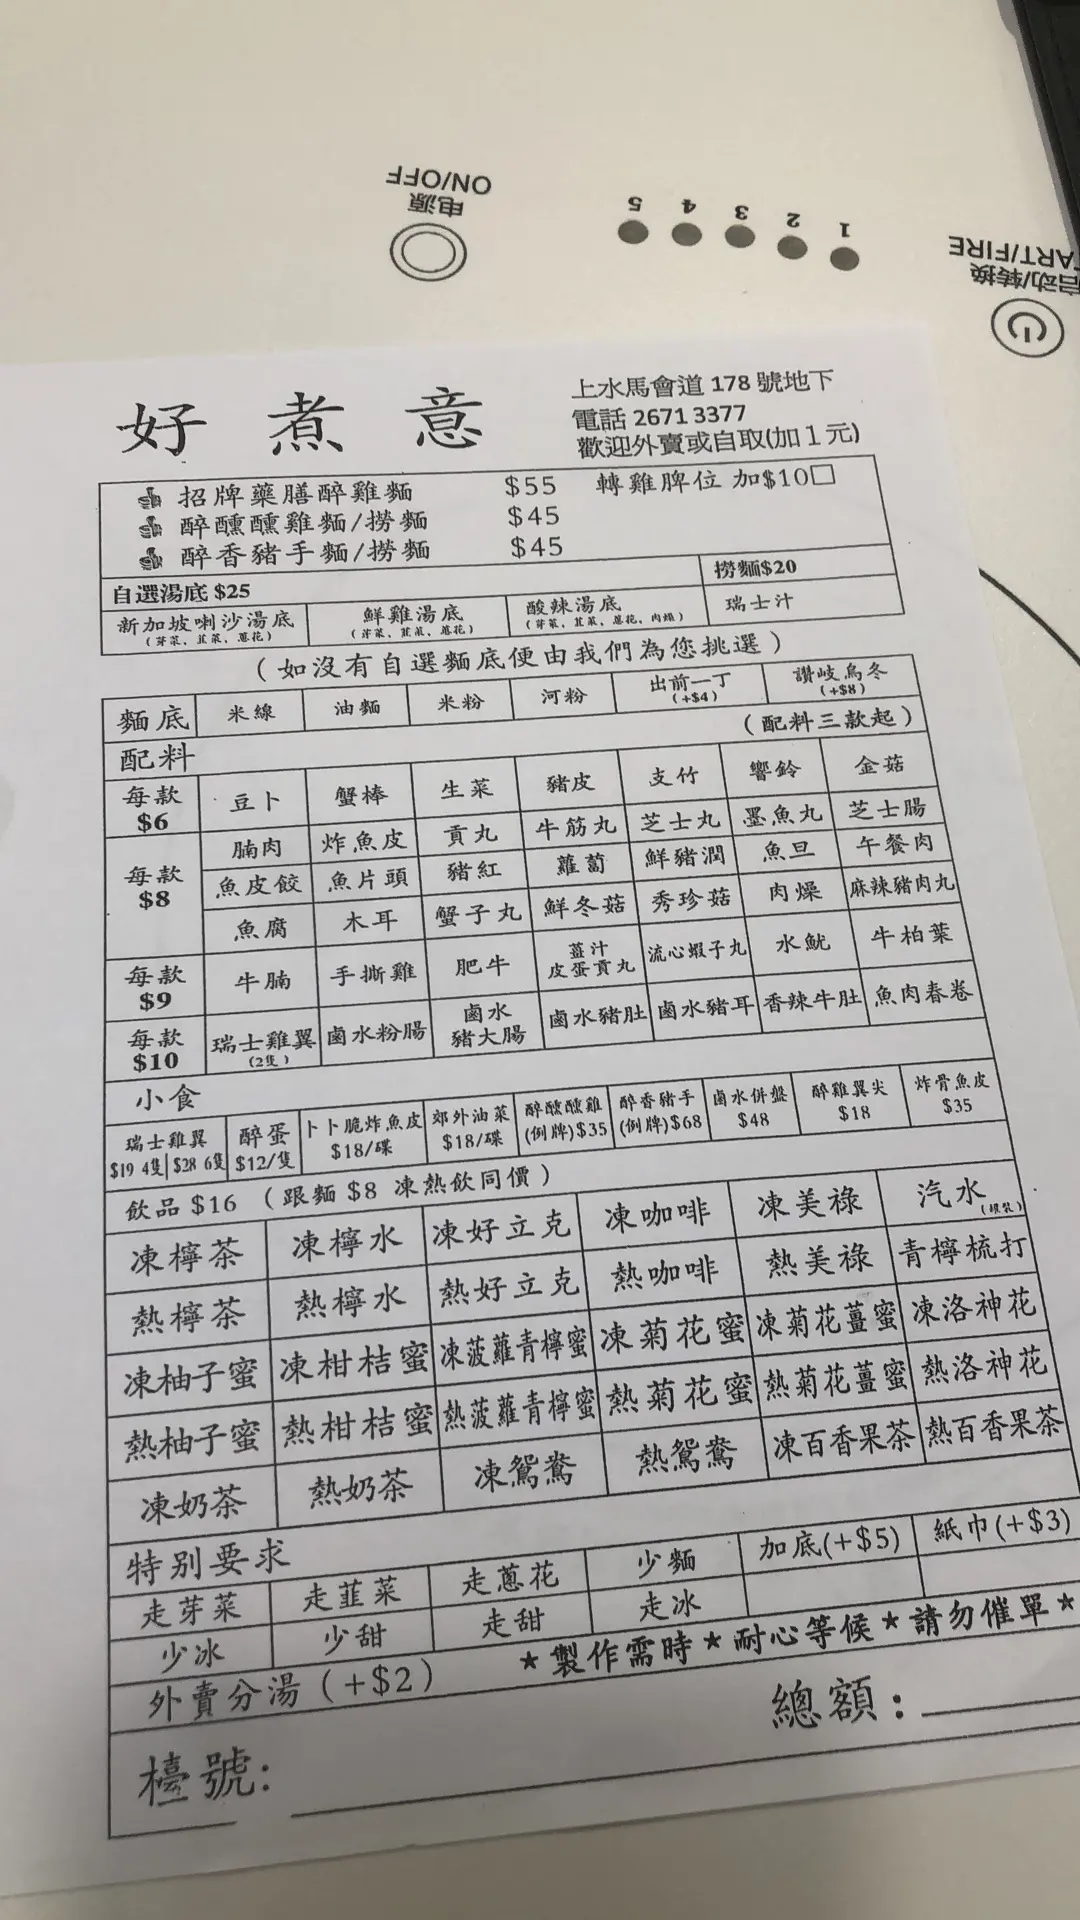 电源
ON/OFF
5 4 3 2 1
启动/转换
好煮意
上水馬會道 178 號地下
電話 2671 3377
歡迎外賣或自取(加1元)
招牌藥膳醉雞麵 $55 轉雞脾位 加$10□
醉醺醺雞麵/撈麵 $45
醉香豬手麵/撈麵 $45
自選湯底 $25 撈麵$20
新加坡喇沙湯底 鮮雞湯底 酸辣湯底 瑞士汁
(芽菜、韮菜、蔥花) (芽菜、韮菜、蔥花) (芽菜、韮菜、蔥花、肉燥)
(如沒有自選麵底便由我們為您挑選)
麵底 米線 油麵 米粉 河粉 出前一丁(+$4) 讚岐烏冬(+$8)
配料 (配料三款起)
每款 $6 豆卜 蟹棒 生菜 豬皮 支竹 響鈴 金菇
每款 $8 腩肉 炸魚皮 貢丸 牛筋丸 芝士丸 墨魚丸 芝士腸
魚皮餃 魚片頭 豬紅 蘿蔔 鮮豬潤 魚旦 午餐肉
魚腐 木耳 蟹子丸 鮮冬菇 秀珍菇 肉燥 麻辣豬肉丸
每款 $9 牛腩 手撕雞 肥牛 薑汁皮蛋貢丸 流心蝦子丸 水魷 牛柏葉
每款 $10 瑞士雞翼(2隻) 鹵水粉腸 鹵水豬大腸 鹵水豬肚 鹵水豬耳 香辣牛肚 魚肉春卷
小食
瑞士雞翼 醉蛋 卜卜脆炸魚皮 郊外油菜 醉醺醺雞 醉香豬手 鹵水併盤 醉雞翼尖 炸骨魚皮
$19 4隻 $28 6隻 $12/隻 $18/碟 $18/碟 (例牌)$35 (例牌)$68 $48 $18 $35
飲品 $16 (跟麵 $8 凍熱飲同價)
凍檸茶 凍檸水 凍好立克 凍咖啡 凍美祿 汽水
熱檸茶 熱檸水 熱好立克 熱咖啡 熱美祿 青檸梳打
凍柚子蜜 凍柑桔蜜 凍菠蘿青檸蜜 凍菊花蜜 凍菊花薑蜜 凍洛神花
熱柚子蜜 熱柑桔蜜 熱菠蘿青檸蜜 熱菊花蜜 熱菊花薑蜜 熱洛神花
凍奶茶 熱奶茶 凍鴛鴦 熱鴛鴦 凍百香果茶 熱百香果茶
特別要求
走芽菜 走韮菜 走蔥花 少麵 加底(+$5) 紙巾(+$3)
少冰 少甜 走甜 走冰
外賣分湯(+$2) ★製作需時★耐心等候★請勿催單★
總額：
檯號: